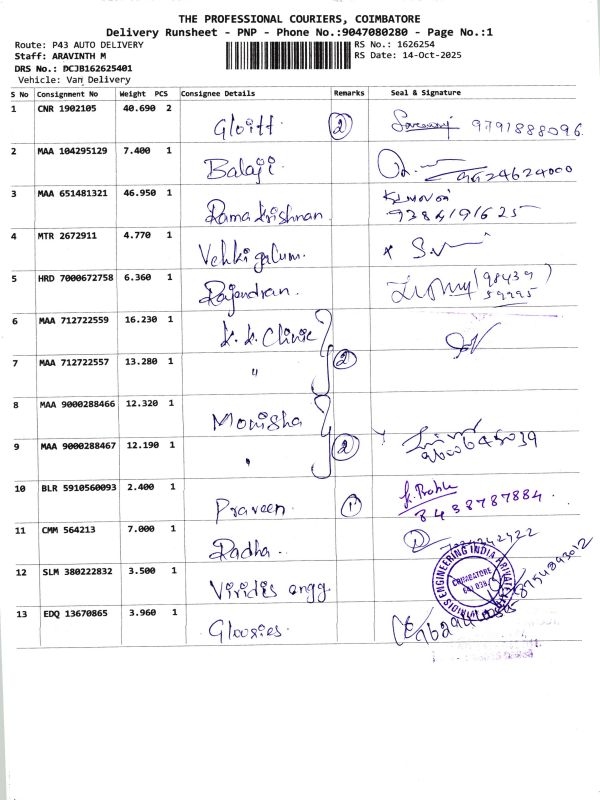 THE PROFESSIONAL COURIERS, COIMBATORE
Delivery Runsheet - PNP - Phone No.:9047080280 - Page No.:1
Route: P43 AUTO DELIVERY RS No.: 1626254
Staff: ARAVINTH M RS Date: 14-Oct-2025
DRS No.: DCJB162625401
Vehicle: Van Delivery
S No Consignment No Weight PCS Consignee Details Remarks Seal & Signature
1 CNR 1902105 40.690 2 Gloitt 2 9791888096
2 MAA 104295129 7.400 1 Balaji 9624624000
3 MAA 651481321 46.950 1 Rama krishnan
9384191625
4 MTR 2672911 4.770 1
5 HRD 7000672758 6.360 1 Rajendran (98439
59995
6 MAA 712722559 16.230 1 K.K. Clinic
7 MAA 712722557 13.280 1 " 2
8 MAA 9000288466 12.320 1 Monisha
9 MAA 9000288467 12.190 1 " 2 9600645039
10 BLR 5910560093 2.400 1 Praveen 1
8438787884
11 CMM 564213 7.000 1 Radha
12 SLM 380222832 3.500 1 Viridis engg
ENGINEERING INDIA PRIVATE
COIMBATORE
13 EDQ 13670865 3.960 1